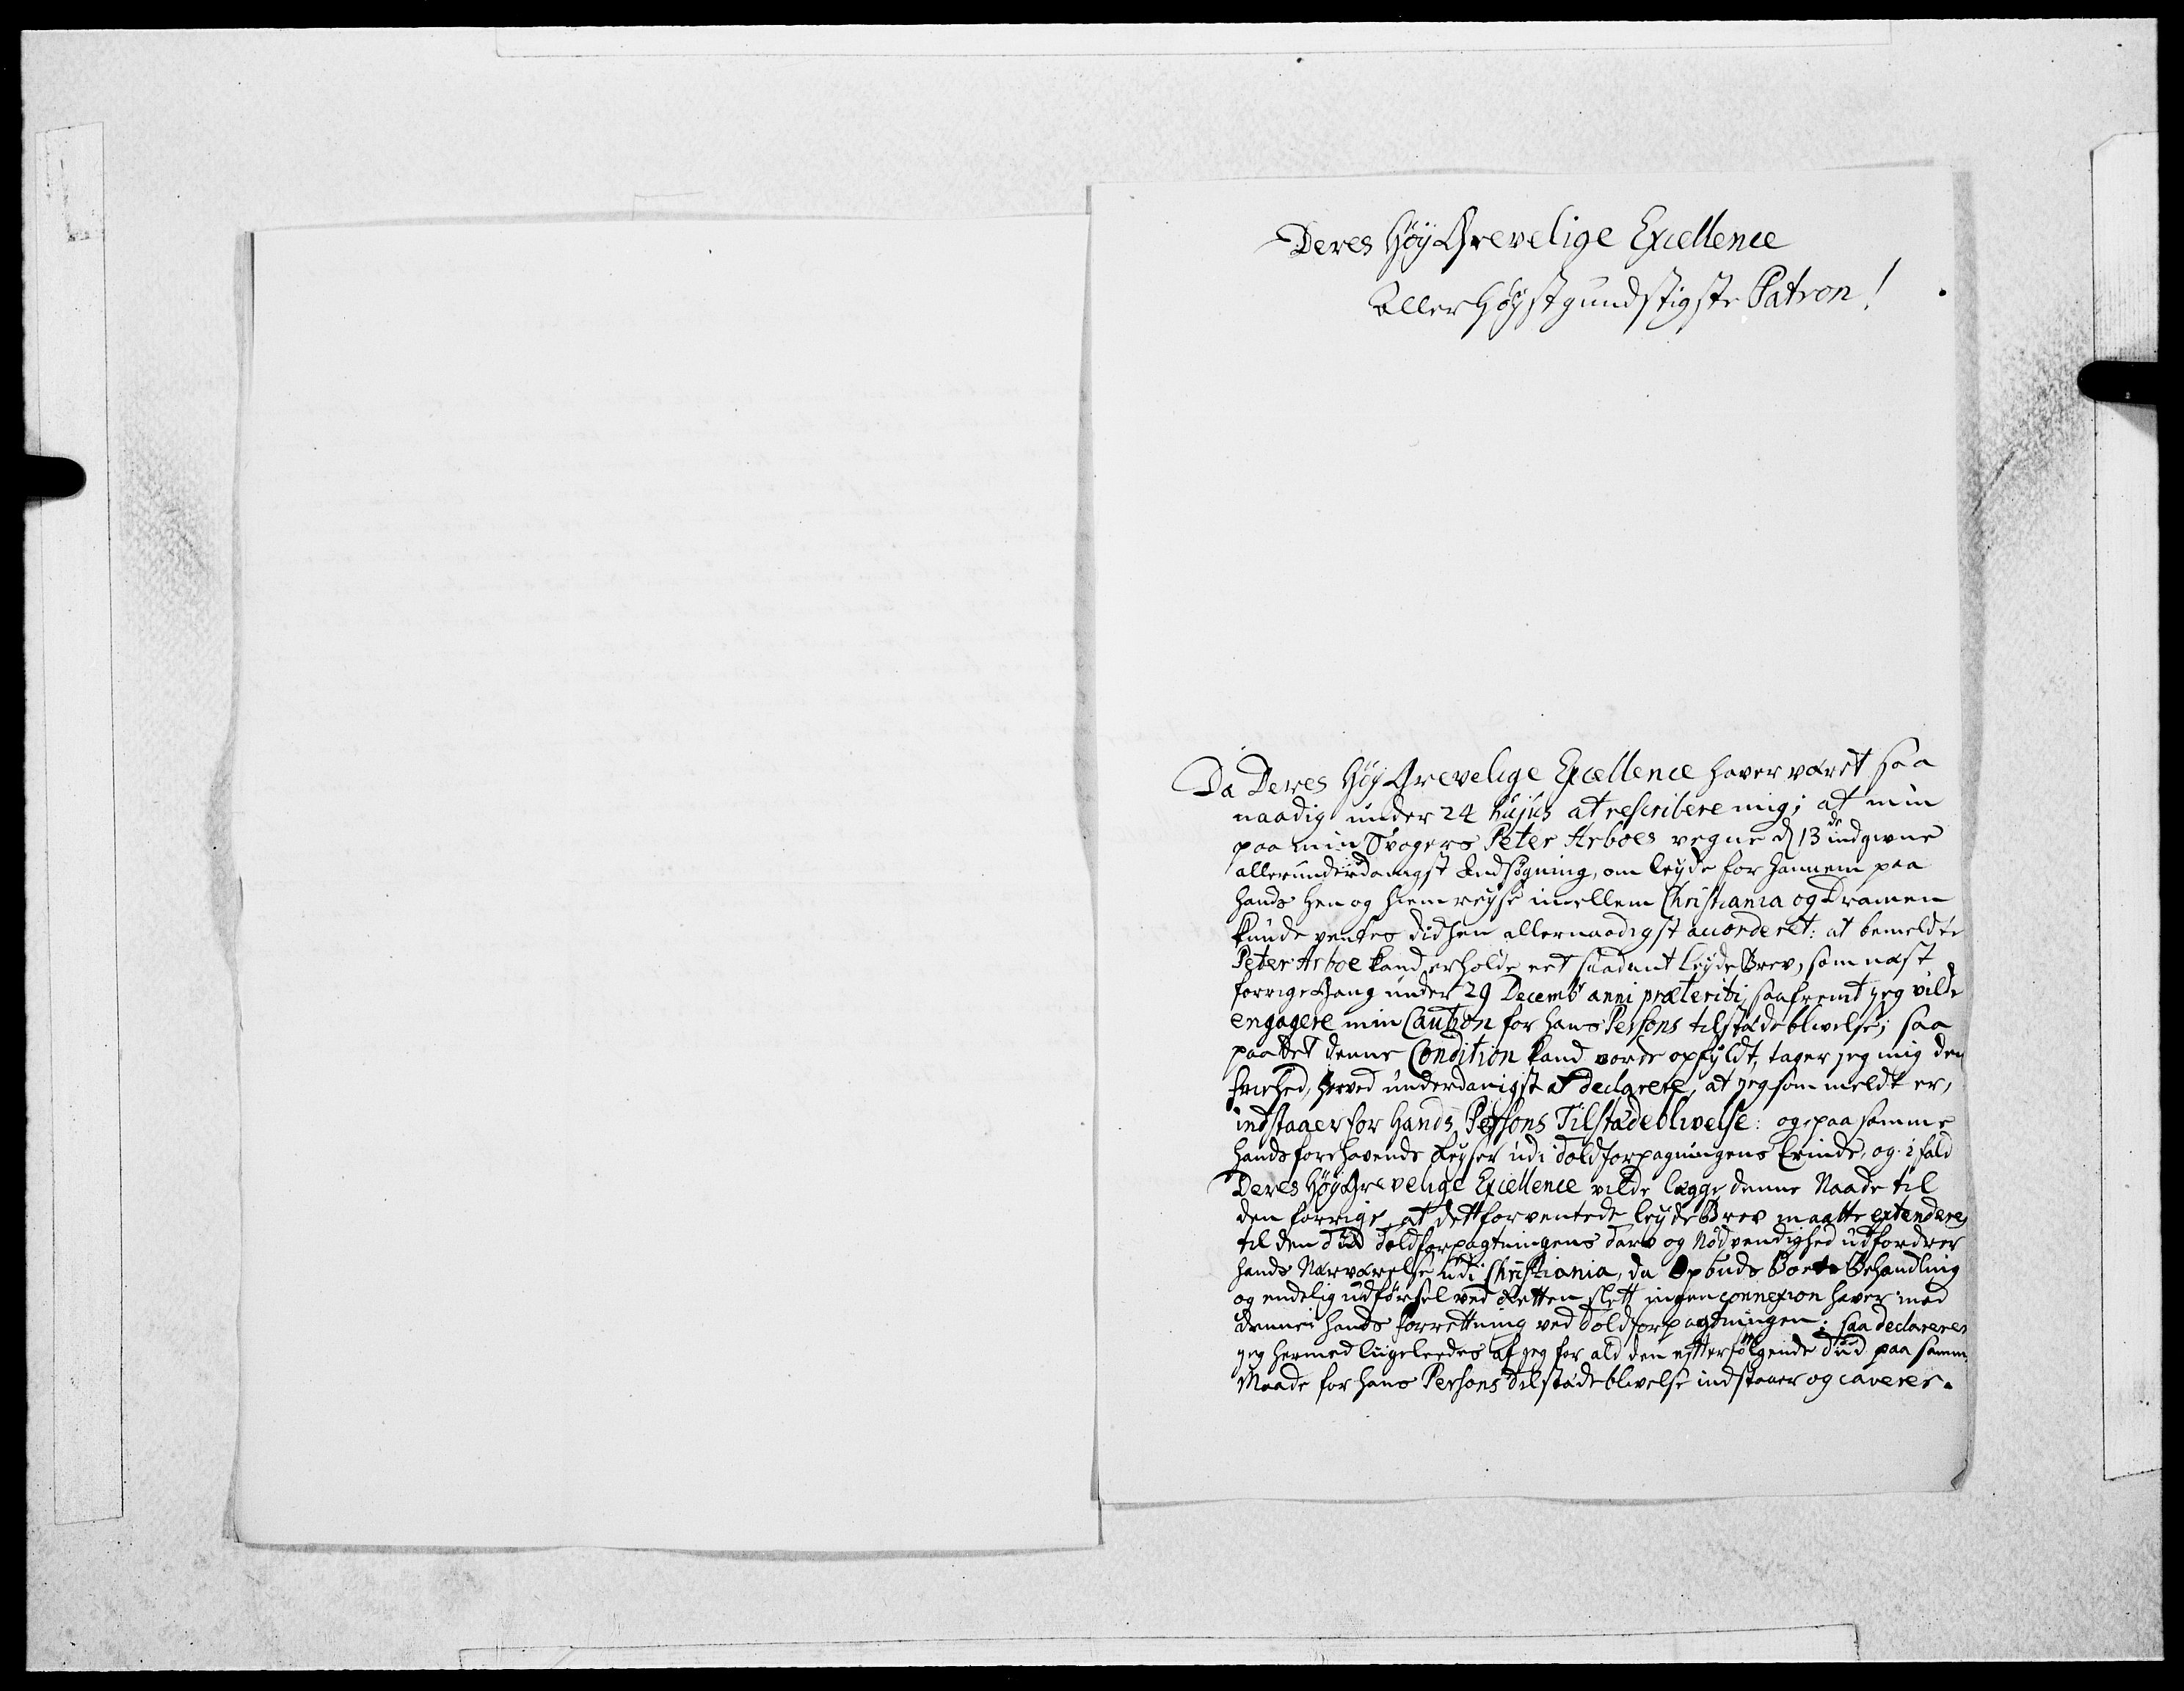 Deres HøyGrevelige Excellence
AllerHøystgundstigste Patron!
Da Deres HøyGrevelige Excellence haver været saa
naadig under 24 hujus at rescribere mig; at min
paa min Svogers Peter Arboes vegne d 13de indgivne
allerunderdanigst Ansøgning, om leyde for hannem paa
hands hen og hiem reyse imellem Christiania og Dramen
kunde ventes didhen allernaadigst accorderet: at bemeldte
Peter Arboe kand erholde eet saadant leydeBrev, som næst
forrige Gang under 29 Decembr anni præteriti, saafremt jeg vilde
engagere min Caution for hans Persons tilstædeblivelse; saa
paa det denne Condition kand vorde opfyldt, tager jeg mig den
friehed, herved underdanigst at declarere, at jeg som meldt er,
indstaaer for Hands Persons Tilstædeblivelse: og paa samme
hands forehavende Reyser udi Toldforpagtningens Erinde, og i fald
Deres HøyGrevelige Excellence vilde lægge denne Naade til
den forrige, at dett forventede leydeBrev maatte extenderes
til den Tiid Toldforpagtningens Tarv og Nødvendighed udfordrer
hands Nærværelse udi Christiania, da Opbuds Boets Behandling
og endelig udførsel ved Retten slett ingen connexion haver med
denne hands forrettning ved Toldforpagtningen; saa declarerer
jeg hermed liigeleedes at jeg for ald den effterfølgende Tiid paa samme
Maade for hans Persons Tilstædeblivelse indstaaer og caverer.